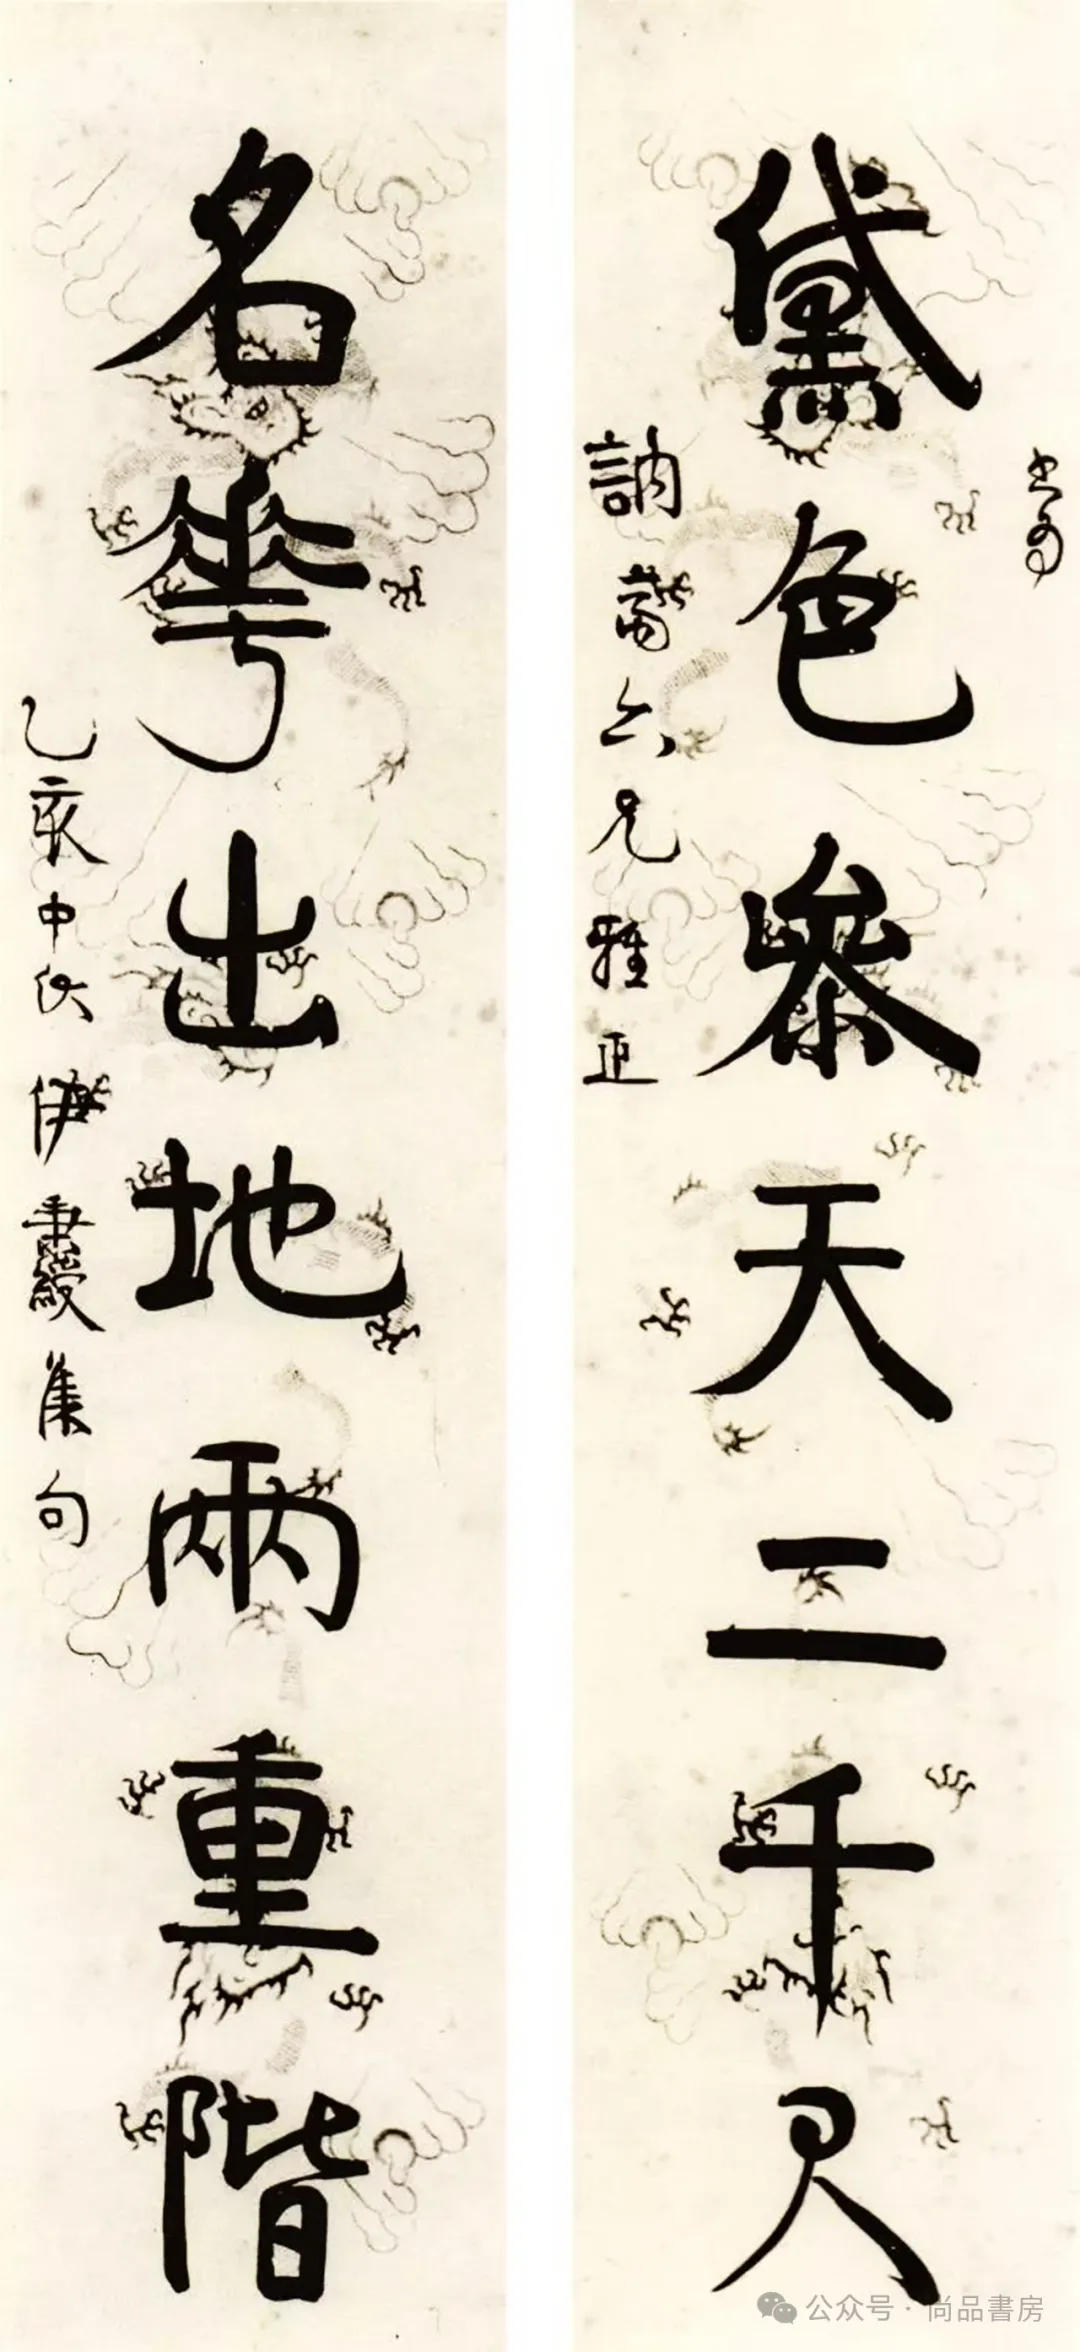 黛色參天二千尺
書為
訥葊六兄雅正
名華出地兩重階
乙亥中秋 伊秉綬集句
公众号·尚品書房